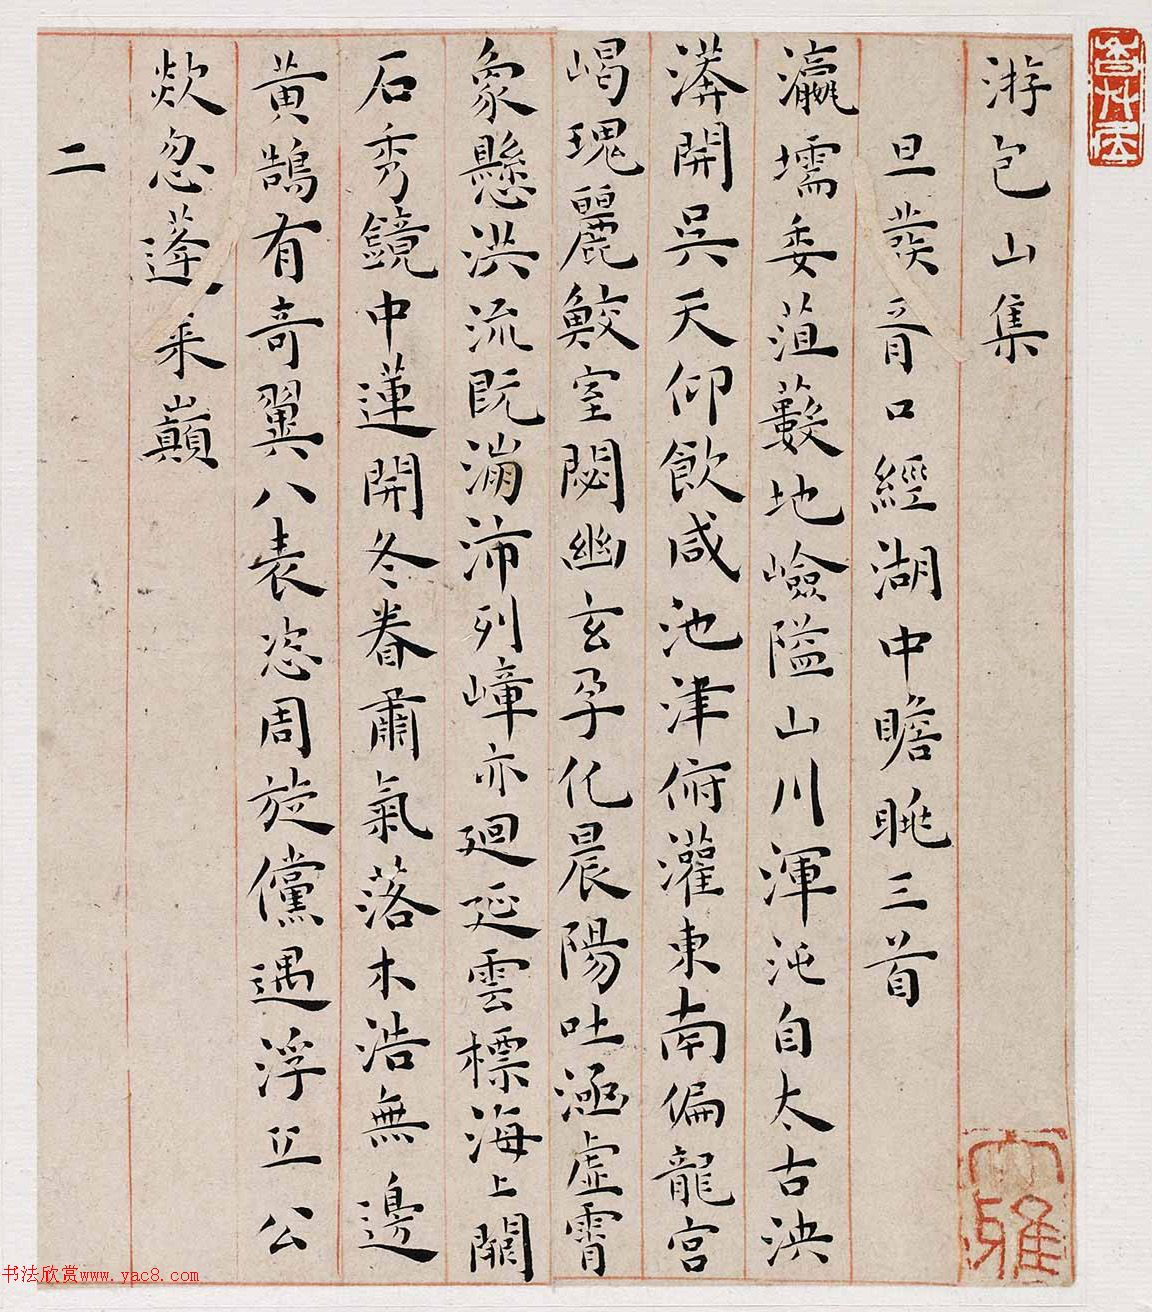 游包山集
旦發胥口經湖中瞻眺三首
瀛壖委菹藪地嶮隘山川渾沌自太古泱
漭開吳天仰飲咸池津俯灌東南偏龍宮
嵑瑰麗鮫室閟幽玄孕化晨陽吐涵虛霄
象懸洪流既滂沛列嶂亦迴延雲標海上闕
石秀鏡中蓮開冬眷肅氣落木浩無邊
黃鵠有奇翼八表恣周旋儻遇浮丘公
欻忽蓬丘巔
二
书法欣赏www.yac8.com